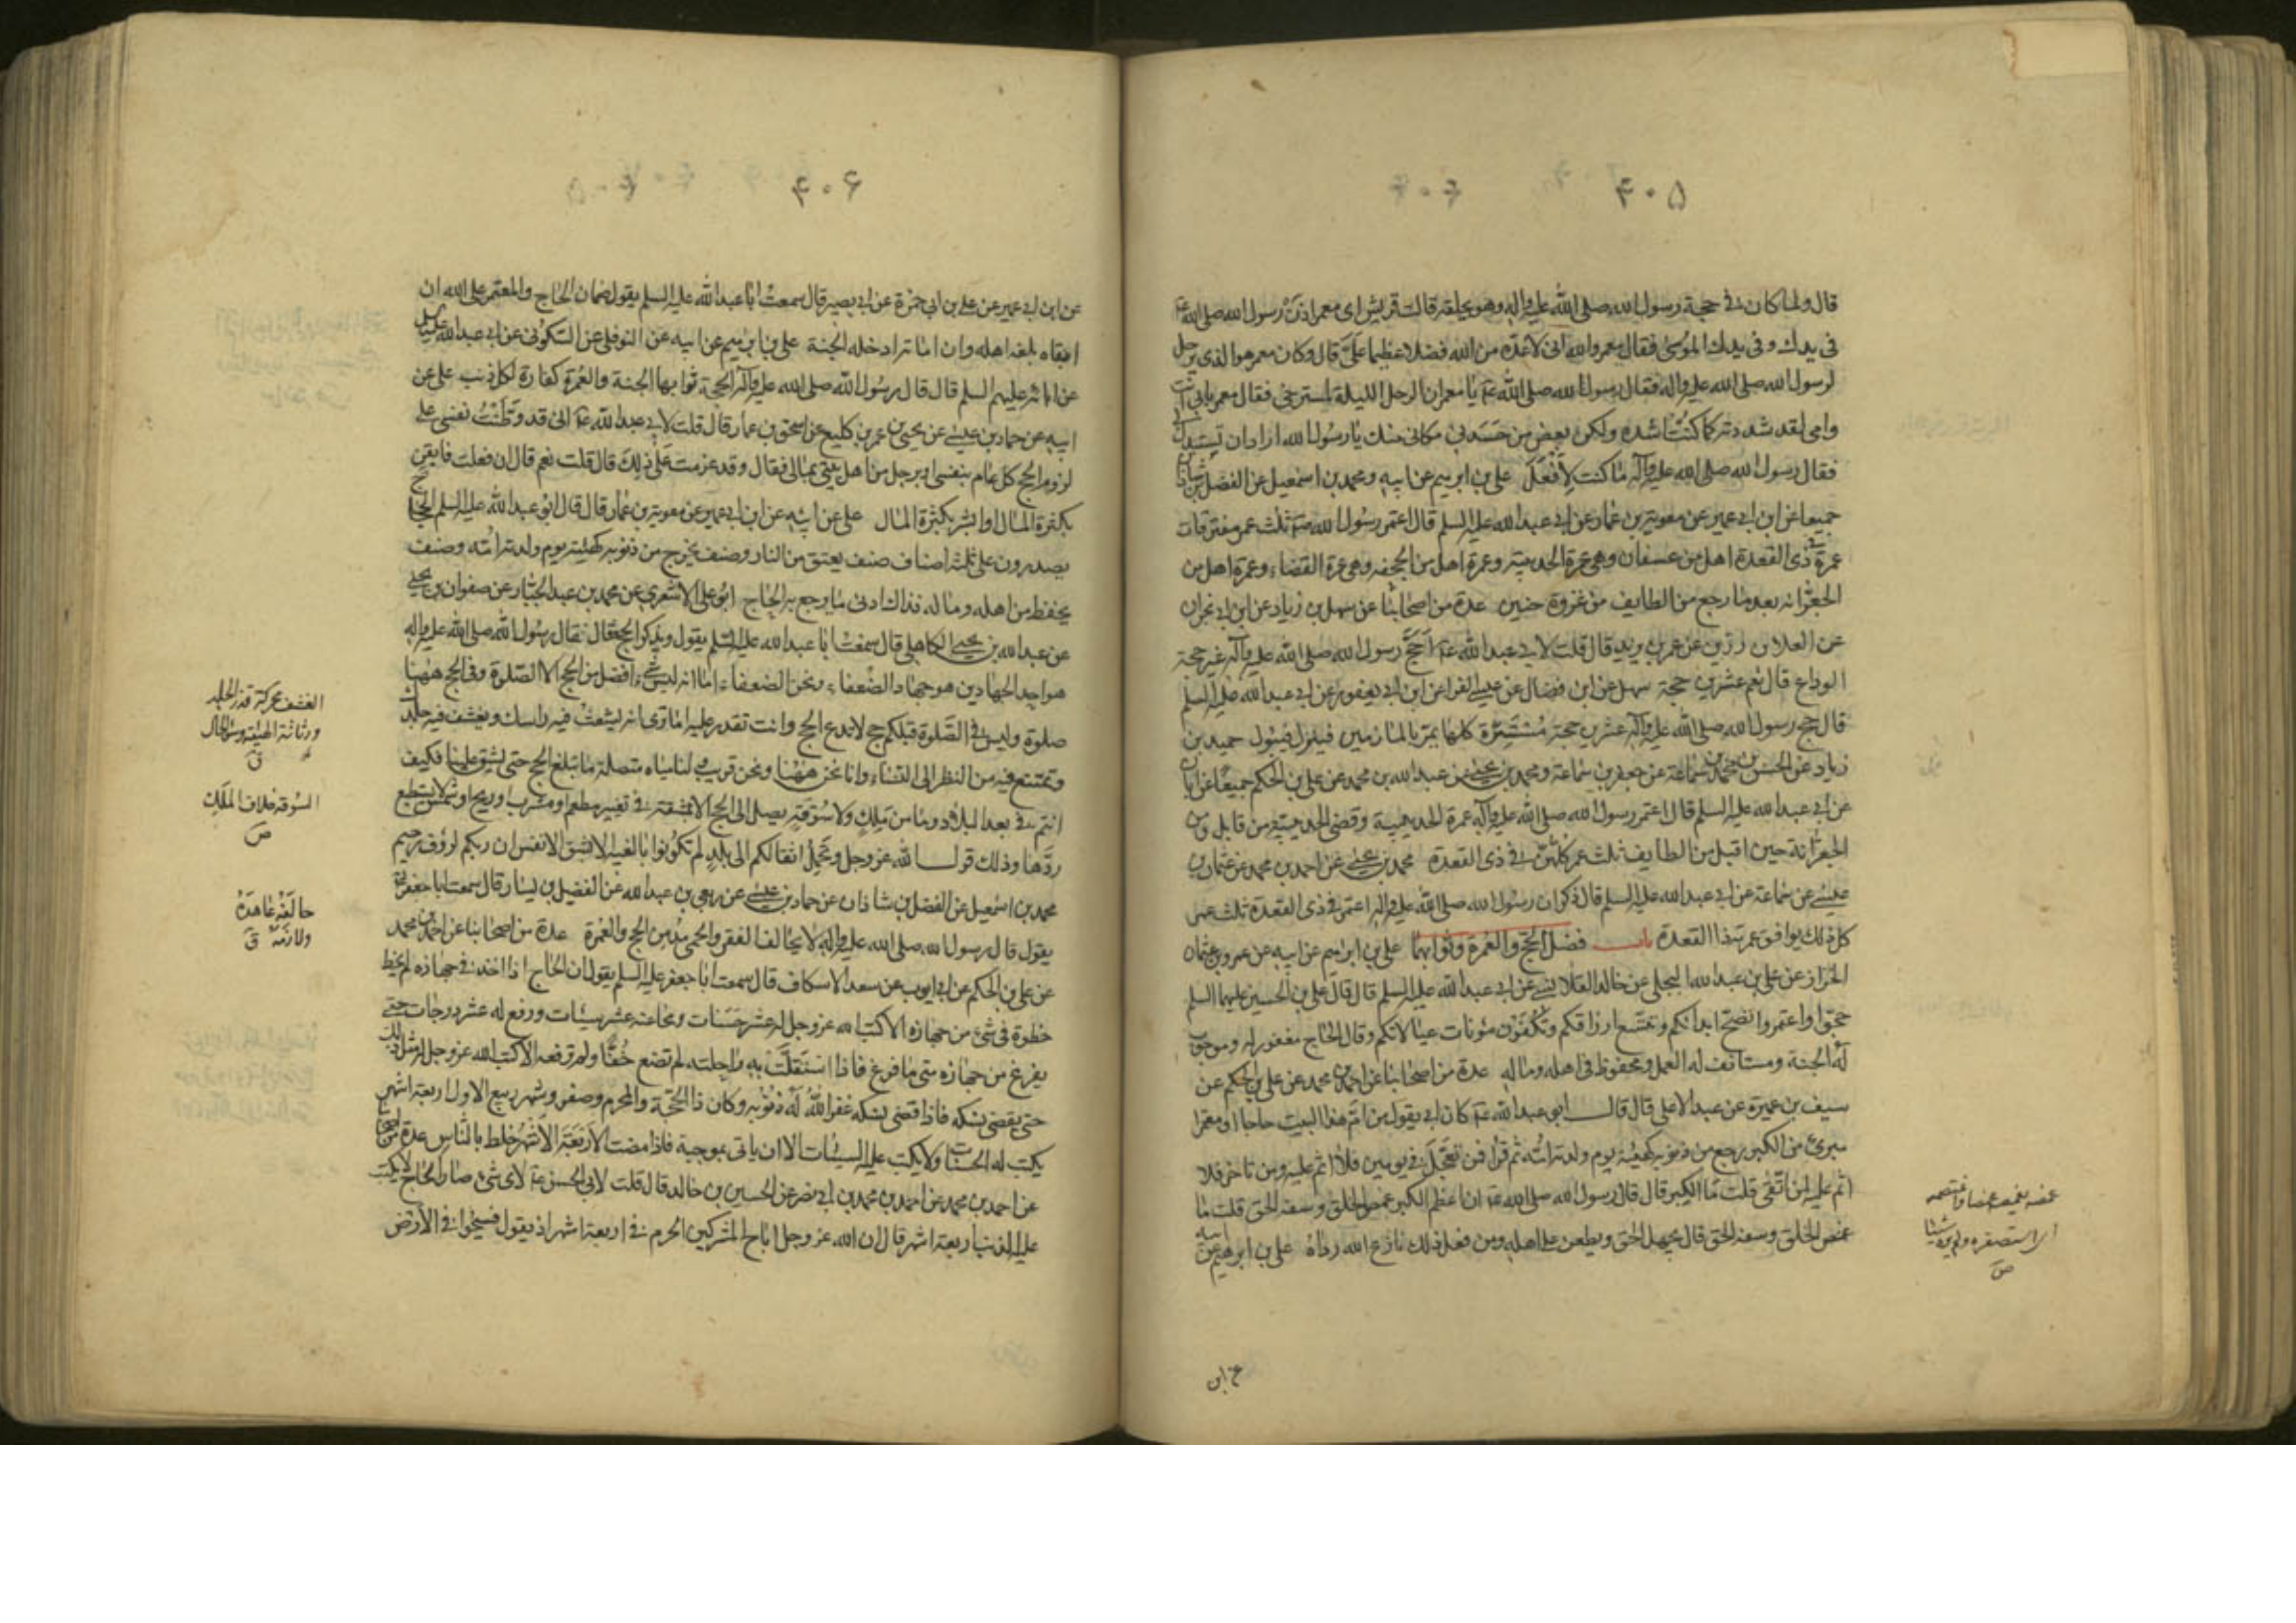 ۴۰۵
قال ولما كان في حجة رسول الله صلى الله عليه واله وهو يحلقه قالت قريش اى معمر اذن رسول الله صلى الله عليه
في يدك وفى يدك الموسى فقال معمر والله انى لاعدّه من الله فضلا عظيما علَيّ قال وكان معمر هو الذى يرحل
لرسول الله صلى الله عليه واله فقال رسول الله صلى الله عليه يا معمر ان الرحل الليلة لمسترخى فقال معمر بابى انت
وامى لقد شددته كما كنت اشده ولكن بعض من حَسَدنى مكانى منك يا رسول الله اراد ان تستبدل بى
فقال رسول الله صلى الله عليه وآله ما كنت لأفعَلَ على بن ابرهيم عن ابيه ومحمد بن اسمعيل عن الفضل بن شاذان
جميعا عن ابن ابى عمير عن معوية بن عمار عن ابى عبد الله عليه السلم قال اعتمر رسول الله ص ثلث عمر مفترقات
عمرة في ذى القعدة اهل من عسفان وهى عمرة الحديبية وعمرة اهل من الجحفه وهى عمرة القضاء وعمرة اهل من
الجعرّانه بعد ما رجع من الطايف من غزوة حنين عدة من اصحابنا عن سهل بن زياد عن ابن ابى نجران
عن العلا بن رزين عن عمر بن يزيد قال قلت لابى عبد الله ع أحَجَّ رسول الله صلى الله عليه وآله غير حجة
الوداع قال نعم عشرين حجة سهل عن ابن فضال عن عيسى الفرا عن ابن ابى يعفور عن ابى عبد الله عليه السلم
قال حج رسول الله صلى الله عليه وآله عشرين حجة مُسْتَسِرَّة كلها يمر بالمازمين فينزل فيبول حميد بن
زياد عن الحسن بن محمد بن سماعة عن جعفر بن سماعة ومحمد بن يحيى عن عبد الله بن محمد عن على بن الحكم جميعا عن ابان
عن ابى عبد الله عليه السلم قال اعتمر رسول الله صلى الله عليه وآله عمرة الحديبية وقضى الحديبية من قابل ومن
الجعرّانة حين اقبل من الطايف ثلث عمر كلّهنّ في ذى القعدة محمد بن يحيى عن احمد بن محمد عن عثمان بن
عيسى عن سماعة عن ابى عبد الله عليه السلم قال ذكر ان رسول الله صلى الله عليه واله اعتمر في ذى القعدة ثلث عمر
كل ذلك يوافق عمرته ذا القعدة باب فضل الحجّ والعُمرة وثوابهما على بن ابراهيم عن ابيه عن عمرو بن عثمان
الخزاز عن على بن عبد الله البجلى عن خالد القلانسى عن ابى عبد الله عليه السلم قال قال على بن الحسين عليهما السلم
حجّوا واعتمروا تصحّ ابدانكم وتتسع ارزاقكم وتُكْفَوْن مئونات عيالاتكم وقال الحاج مغفور له وموجوب
له الجنة ومستانف له العمل ومحفوظ في اهله وماله عدة من اصحابنا عن احمد بن محمد عن على بن الحكم عن
سيف بن عميرة عن عبد الاعلى قال قال ابو عبد الله ع كان ابى يقول من امّ هذا البيت حاجا او معتمرا
مبرئ من الكبر رجع من ذنوبه كهيئة يوم ولدته امّه ثم قرا فمن تعجّل في يومين فلا اثم عليه ومن تاخر فلا
اثم عليه لمن اتّقى قلت ما الكبر قال قال رسول الله صلى الله ع ان اعظم الكبر غمص الخلق وسفه الحق قلت ما
غمص الخلق وسفه الحق قال يجهل الحق ويطعن على اهله ومن فعل ذلك نازع الله رداه على بن ابرهيم عن ابيه
غمصه يغمصه غمصا واغتمصه
اى استصغره ولم يره شيئا
ص
عن ابن
۴۰۶
عن ابن ابى عمير عن على بن ابى حمزة عن ابى بصير قال سمعت ابا عبد الله عليه السلم يقول ضمان الحاج والمعتمر على الله ان
ابقاه بلغه اهله وان اماته ادخله الجنة على بن ابرهيم عن ابيه عن النوفلى عن السكونى عن ابى عبد الله عليه السلم
عن ابائه عليهم السلم قال قال رسول الله صلى الله عليه وآله الحجة ثوابها الجنة والعُمرة كفارة لكل ذنب على عن
ابيه عن حماد بن عيسى عن يحيى بن عمر بن كليع عن اسحق بن عمار قال قلت لابى عبد الله ع انى قد وَطَّنْتُ نفسى على
لزوم الحج كل عام بنفسى او برجل من اهل بيتى بمالى فقال وقد عزمت على ذلك قال قلت نعم قال ان فعلت فايقن
بكثرة المال او ابشر بكثرة المال على عن ابيه عن ابن ابى عمير عن معوية بن عمار قال قال ابو عبد الله عليه السلم الحجاج
يصدرون على ثلثة اصناف صنف يعتق من النار وصنف يخرج من ذنوبه كهيئة يوم ولدته امّه وصنف
يحفظ من اهله وماله فذاك ادنى ما يرجع به الحاج ابو على الاشعرى عن محمد بن عبد الجبار عن صفوان بن يحيى
عن عبد الله بن يحيى الكاهلى قال سمعت ابا عبد الله عليه السلم يقول ويذكر الحج فقال قال رسول الله صلى الله عليه واله
هو احد الجهادين هو جهاد الضعفاء ونحن الضعفاء اما انه ليس شىء افضل من الحج الا الصلوة وفى الحج ههنا
صلوة وليس في الصّلوة قبلكم حج لا تدع الحج وانت تقدر عليه اما ترى انه يشعث فيه راسك ويقشف فيه جلدك
وتمتنع فيه من النظر الى النساء وانا نحن ههنا ونحن قريب ولنا مياه متصلة ما نبلغ الحج حتى يشق علينا فكيف
انتم في بعد البلاد وما من مَلِك ولا سُوقَةٍ يصل الى الحج الا بمشقة في تغيير مطعم او مشرب او ريح او شمس لا يستطيع
ردّها وذلك قول الله عز وجل وتَحمِل اثقالكم الى بلدٍ لم تكونوا بالغيه الا بشق الانفس ان ربكم لرؤف رحيم
محمد بن اسمعيل عن الفضل بن شاذان عن حماد بن عيسى عن ربعى بن عبد الله عن الفضيل بن يسار قال سمعت ابا جعفر ع
يقول قال رسول الله صلى الله عليه واله لا يحالف الفقر والحمى مدمن الحج والعُمرة عدة من اصحابنا عن احمد بن محمد
عن على بن الحكم عن ابى ايوب عن سعد الاسكاف قال سمعت ابا جعفر عليه السلم يقول ان الحاج اذا اخذ في جهازه لم يخط
خطوة في شئ من جهازه الا كتب الله عز وجل له عشر حَسَنات ومحا عنه عشر سيئات ورفع له عشر درجات حتى
يفرغ من جهازه متى ما فرغ فاذا استَقلَّت به راحلته لم تضع خُفًّا ولم ترفعه الا كتب الله عز وجل له مثل ذلك
حتى يقضى نسكه فاذا قضى نسكه غفر الله له ذنوبه وكان ذا الحجّة والمحرم وصفر وشهر ربيع الاول اربعة اشهر
يكتب له الحسنات ولا يكتب عليه السيئات الا ان ياتى بموجبة فاذا مضت الاربعَةَ الاشهُر خلط بالنّاس عدة من اصحابنا
عن احمد بن محمد عن احمد بن محمد بن ابى نصر عن الحسين بن خالد قال قلت لابى الحسن ع لاى شئ صار الحاج لا يكتب
عليه الذنب اربعة اشهر قال ان الله عز وجل اباح المشركين الحرم في اربعة اشهر اذ يقول فسيحوا في الارض
القشف محركة قذر الجلد
ورثاثة الهيئة وسوء الحال
ق
السوقة خلاف الملك
ص
حالفَهُ عاهدَهُ
ولازمَهُ ق